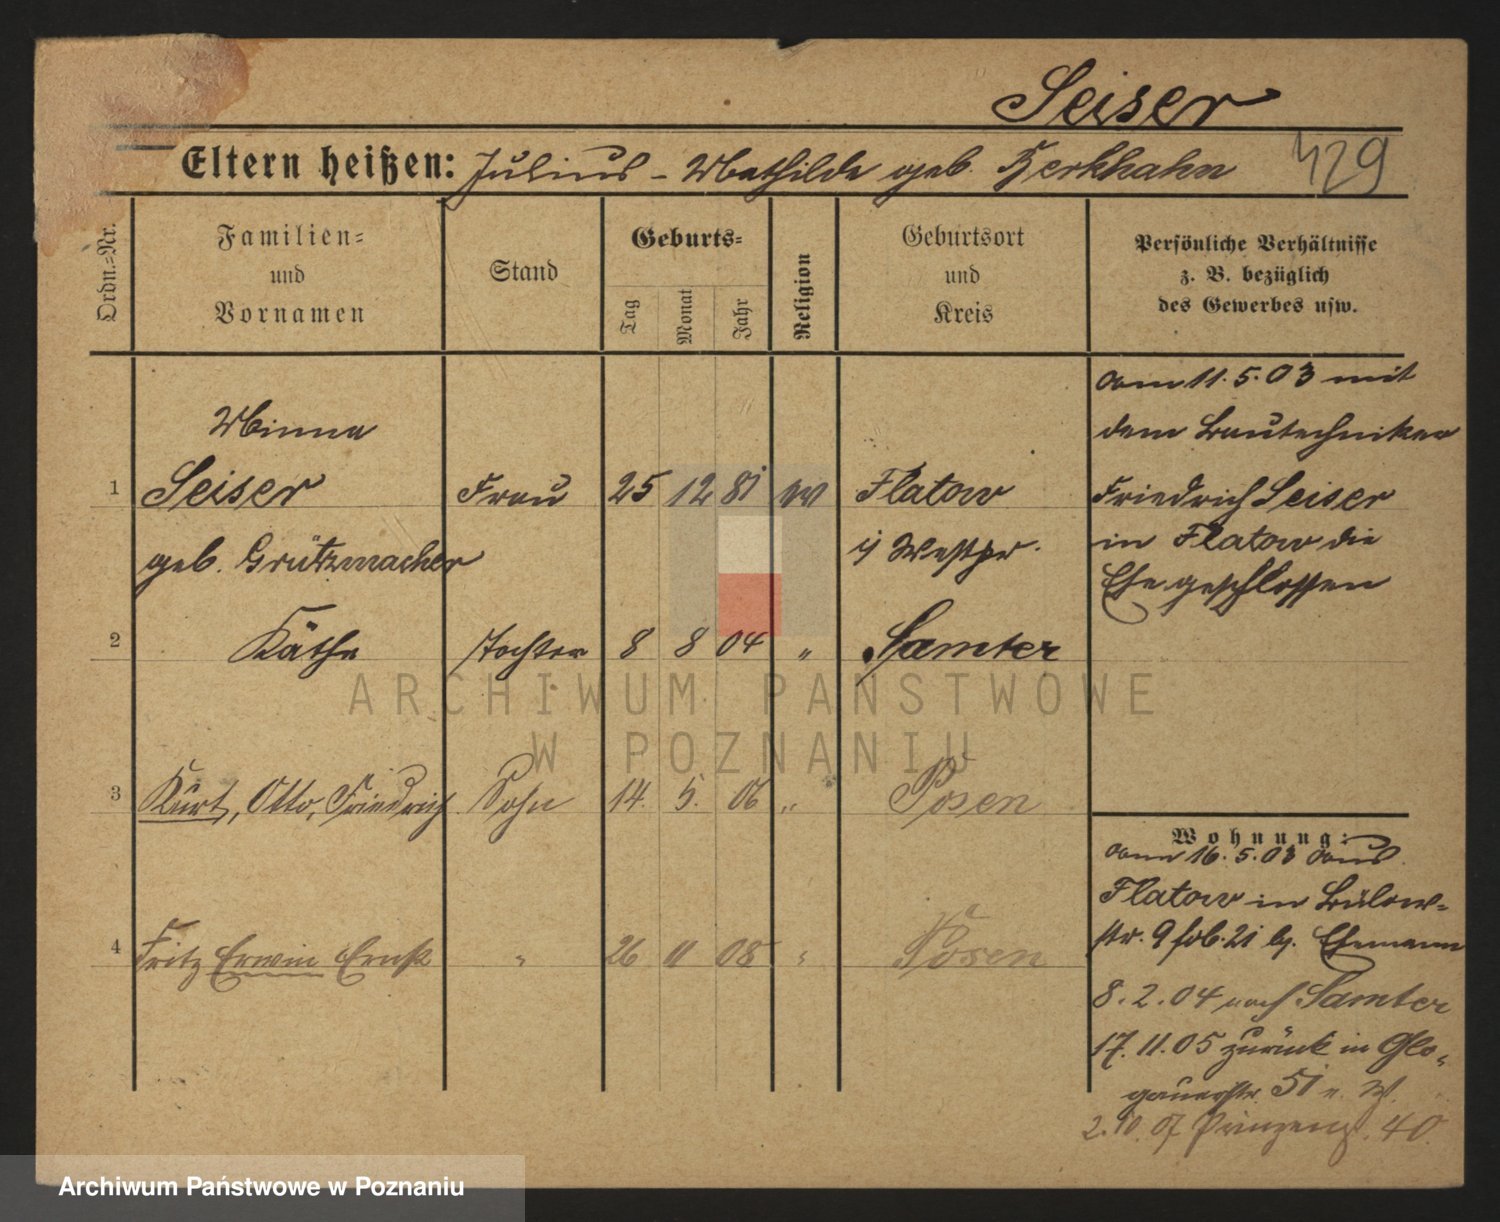 Seiser
Eltern heißen: Julius - Mathilde geb. Zerkhahn
429
Ordn.-Nr.
Familien- und Vornamen
Stand
Geburts-
Tag
Monat
Jahr
Religion
Geburtsort und Kreis
Persönliche Verhältnisse
z. B. bezüglich
des Gewerbes usw.
Minna
1 Seiser Frau 25 12 81 Flatow
geb. Grützmacher Westpr.
am 11.5.03 mit
dem Bautechniker
Friedrich Seiser
in Flatow die
Ehe geschlossen
2 Käthe Tochter 8 8 04 " Samter
3 Kurt, Otto, Friedrich Sohn 14. 5. 06 " Posen
4 Fritz Erwin Ernst " 26 11 08 " Posen
Wohnung:
am 16.5.03 aus
Flatow in Bülow-
str. 9 b. Ehemann
8.2.04 nach Samter
17.11.05 zurück in Glo-
gauerstr. 51
2.10.07 Prinzenst. 40
ARCHIWUM PAŃSTWOWE
W POZNANIU
Archiwum Państwowe w Poznaniu